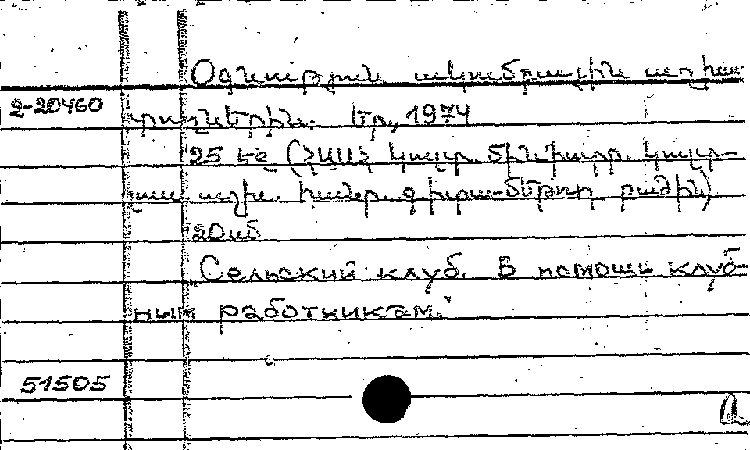 Օգնություն ակումբային աշխա-
2-20460 տողներին. Եր., 1974
25 էջ (ՀՍՍՀ կուլտ. մին-իստր. կուլտ-
լուս աշխ. հանր. գիտա-մեթոդ բաժին)
20սմ
Сельский клуб. В помощь клуб-
ным работникам.
51505